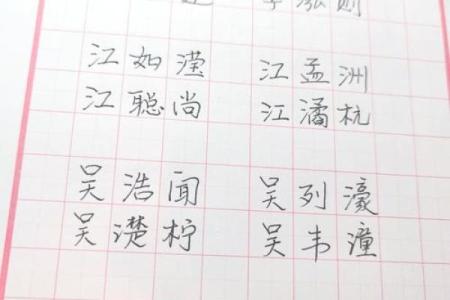 泓则
江如滢 江孟洲
江聪尚 江潏杭
吴浩闻 吴列濠
吴濋柠 吴韦潼